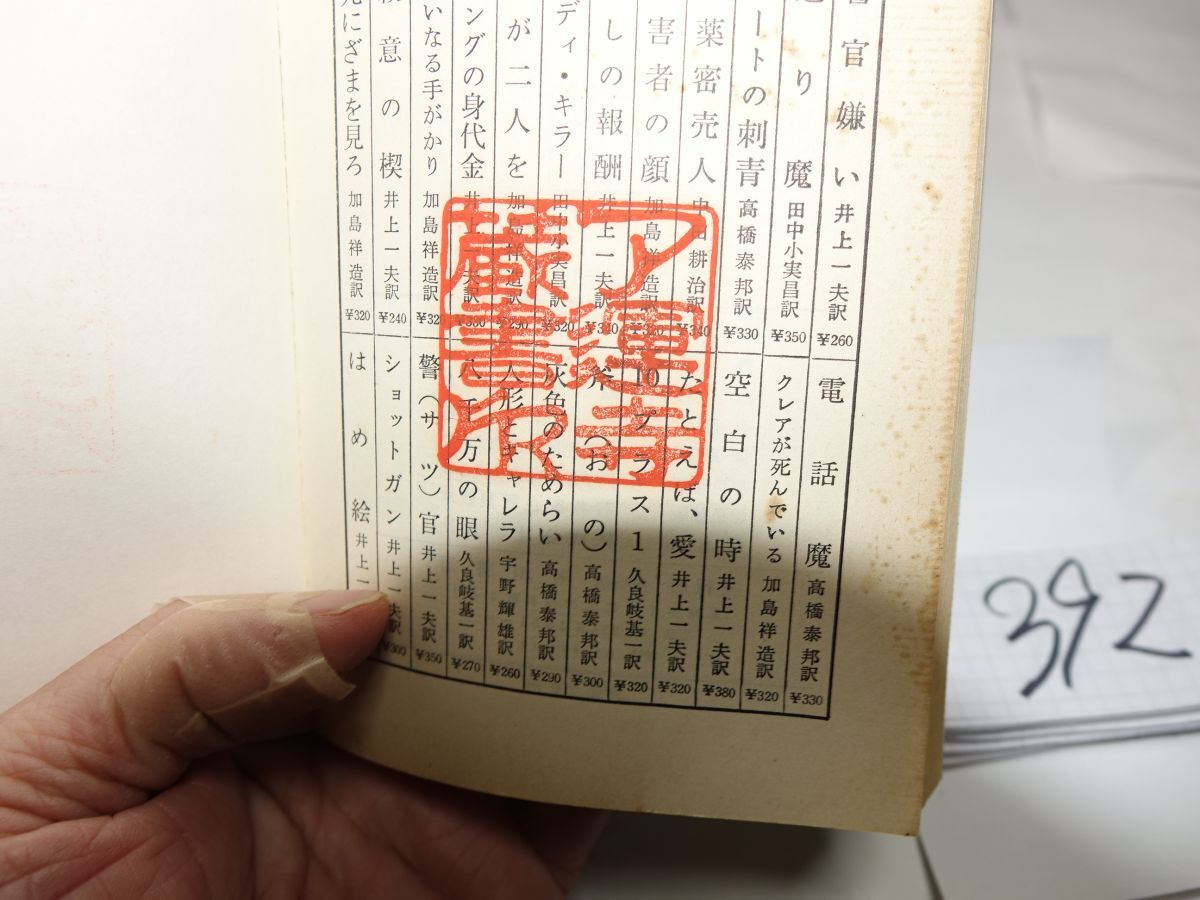 官嫌い 井上一夫訳 ¥260
り魔 田中小実昌訳 ¥350
ートの刺青 高橋泰邦訳 ¥330
薬密売人 中田耕治訳 ¥340
害者の顔 加島祥造訳 ¥320
しの報酬 井上一夫訳 ¥340
ディ・キラー 田中小実昌訳 ¥320
が二人を 加島祥造訳 ¥290
ングの身代金 井上一夫訳 ¥300
いなる手がかり 加島祥造訳 ¥320
意の楔 井上一夫訳 ¥240
にざまを見ろ 加島祥造訳 ¥320
電話魔 高橋泰邦訳 ¥330
クレアが死んでいる 加島祥造訳 ¥320
空白の時 井上一夫訳 ¥380
たとえば、愛 井上一夫訳 ¥320
10プラス1 久良岐基一訳 ¥320
斧(おの) 高橋泰邦訳 ¥300
灰色のためらい 高橋泰邦訳 ¥290
人形とキャレラ 宇野輝雄訳 ¥260
八千万の眼 久良岐基一訳 ¥270
警(サツ)官 井上一夫訳 ¥350
ショットガン 井上一夫訳 ¥300
はめ絵 井上一
蔵書印
392